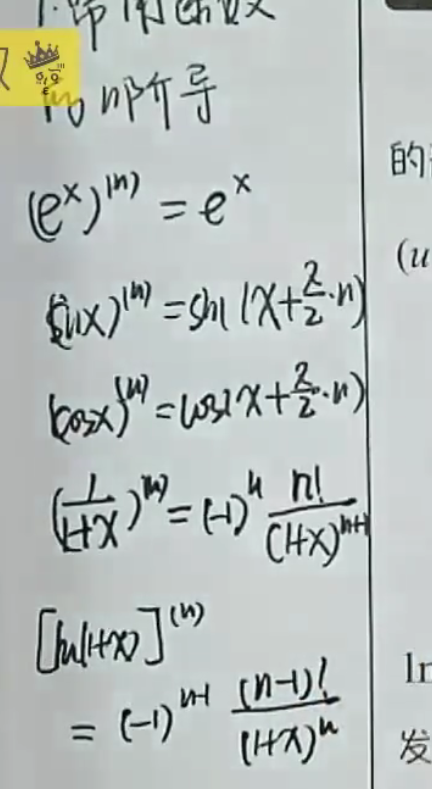 的 n阶导
(eˣ)⁽ⁿ⁾ = eˣ
(sinx)⁽ⁿ⁾ = sin(x+π/2·n)
(cosx)⁽ⁿ⁾ = cos(x+π/2·n)
(1/(1+x))⁽ⁿ⁾ = (-1)ⁿ n!/(1+x)ⁿ⁺¹
[ln(1+x)]⁽ⁿ⁾
= (-1)ⁿ⁻¹ (n-1)!/(1+x)ⁿ
的
(u
ln
发